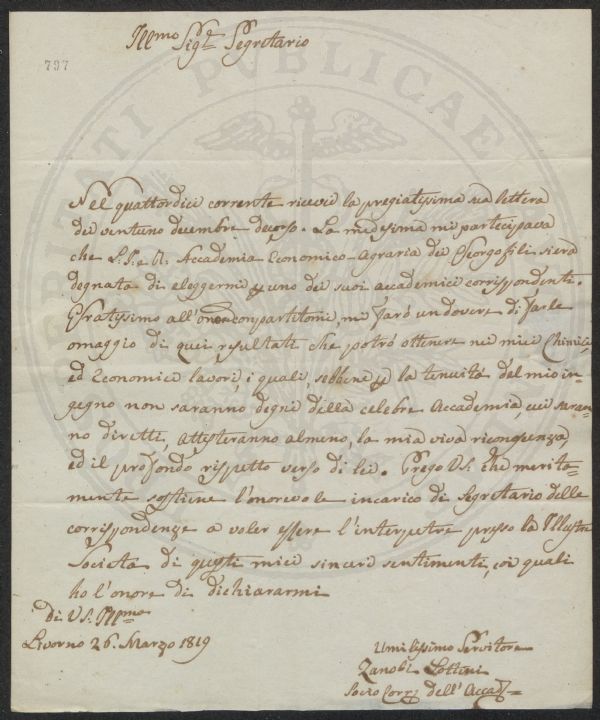 Illmo Sigre Segretario
797
Nel quattordici corrente ricevei la pregiatissima sua lettera
dei ventuno decembre decorso. La medesima mi partecipava
che L'I. e R. Accademia Economico-agraria dei Georgofili si era
degnata di eleggermi per uno dei suoi accademici corrispondenti.
Gratissimo all'onor compartitomi, mi farò un dovere di farle
omaggio di quei resultati che potrò ottenere nei miei Chimici,
ed Economici lavori i quali, sebbene per la tenuità del mio in=
gegno non saranno degni della celebre Accademia cui saran=
no diretti, attesteranno almeno, la mia viva riconoscenza,
ed il profondo rispetto verso di lei. Prego V.S. che merita=
mente sostiene l'onorevole incarico di Segretario delle
corrispondenze a voler essere l'interpetre presso la Illustre
Società di questi miei sinceri sentimenti, coi quali
ho l'onore di dichiararmi
Di V.S. Illma
Livorno 26. Marzo 1819
Umilissimo Servitore
Zanobi
Socio Corre dell' Accad
PUBLICAE